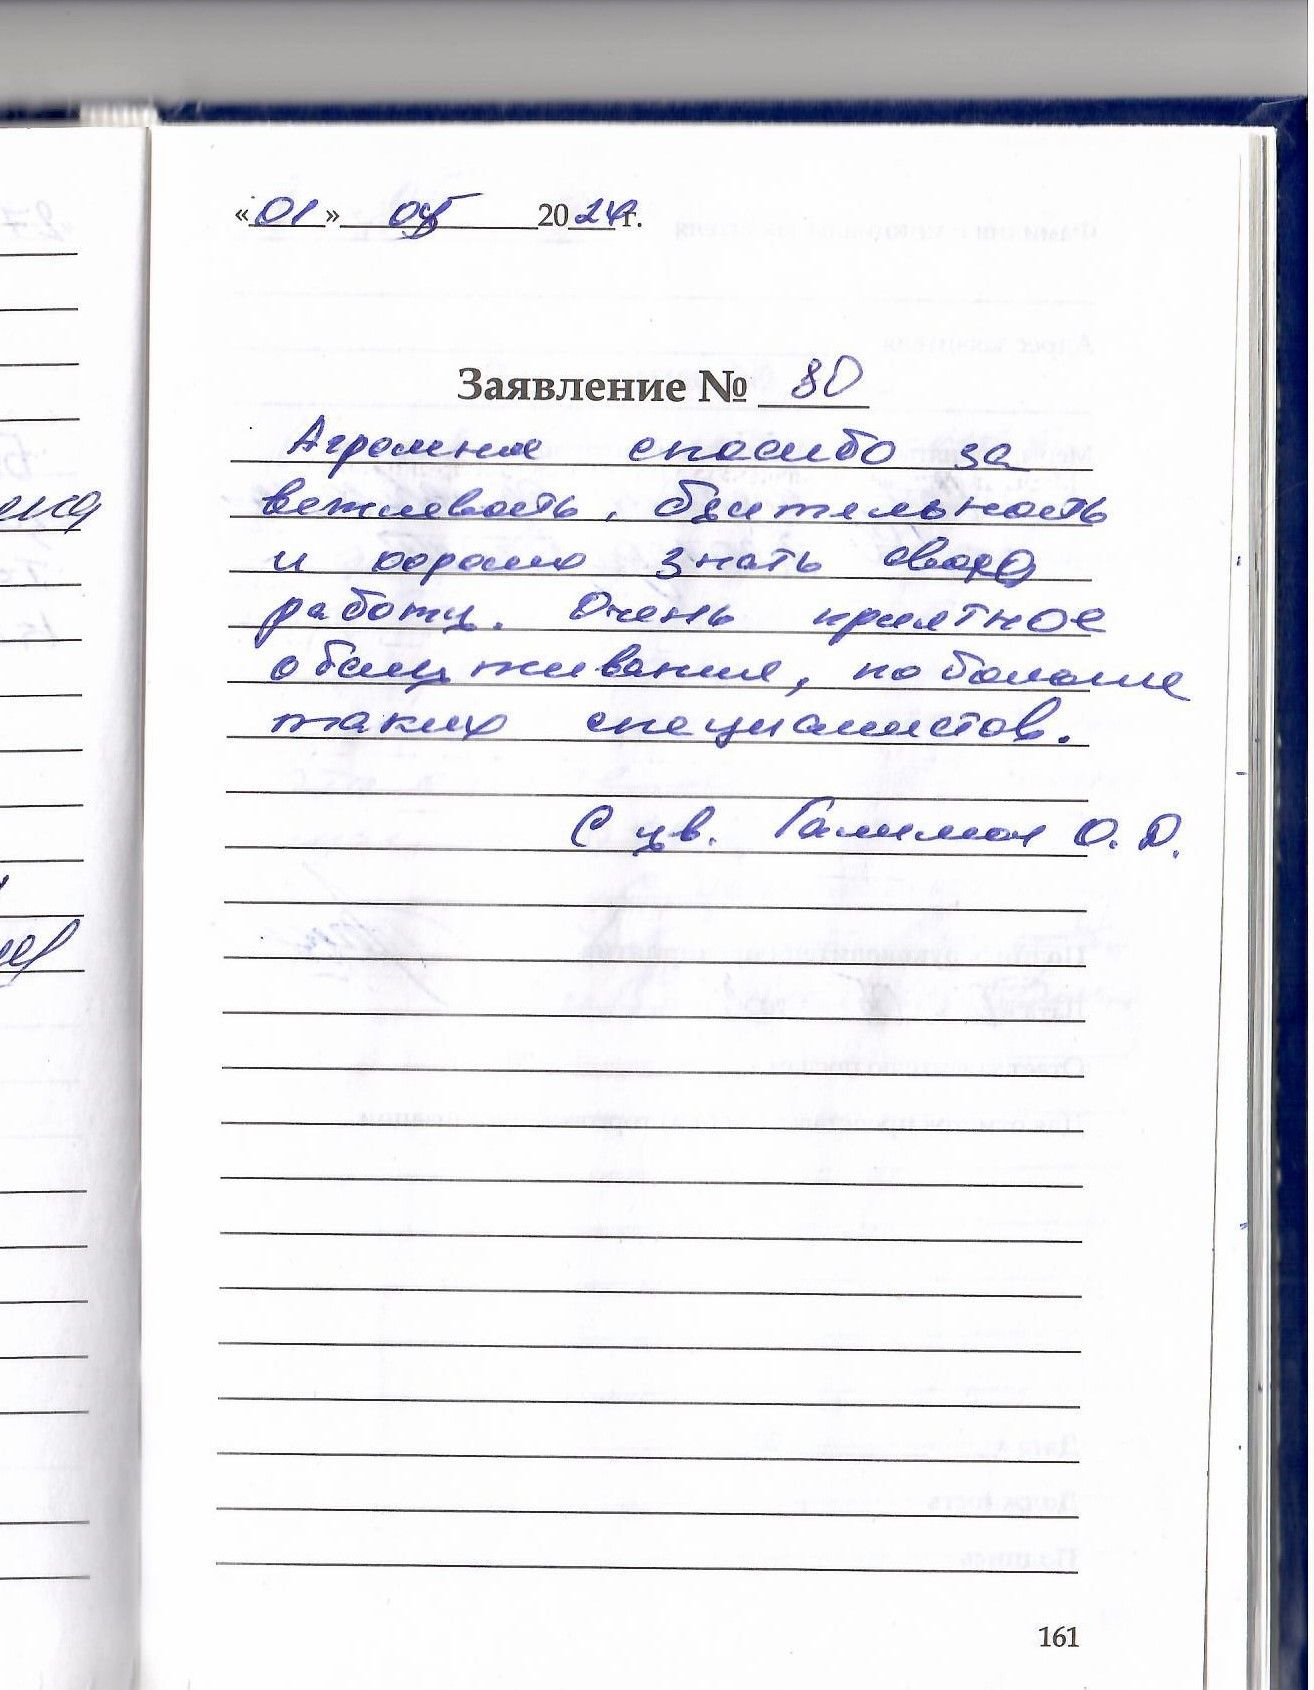 «01» 08 2024г.
Заявление № 80
Агромное спасибо за
вежлевость, бдительность
и хорошо знать свою
работу. Очень приятное
обслуживание, побольше
таких специалистов.
С ув. Галимов О. Д.
161